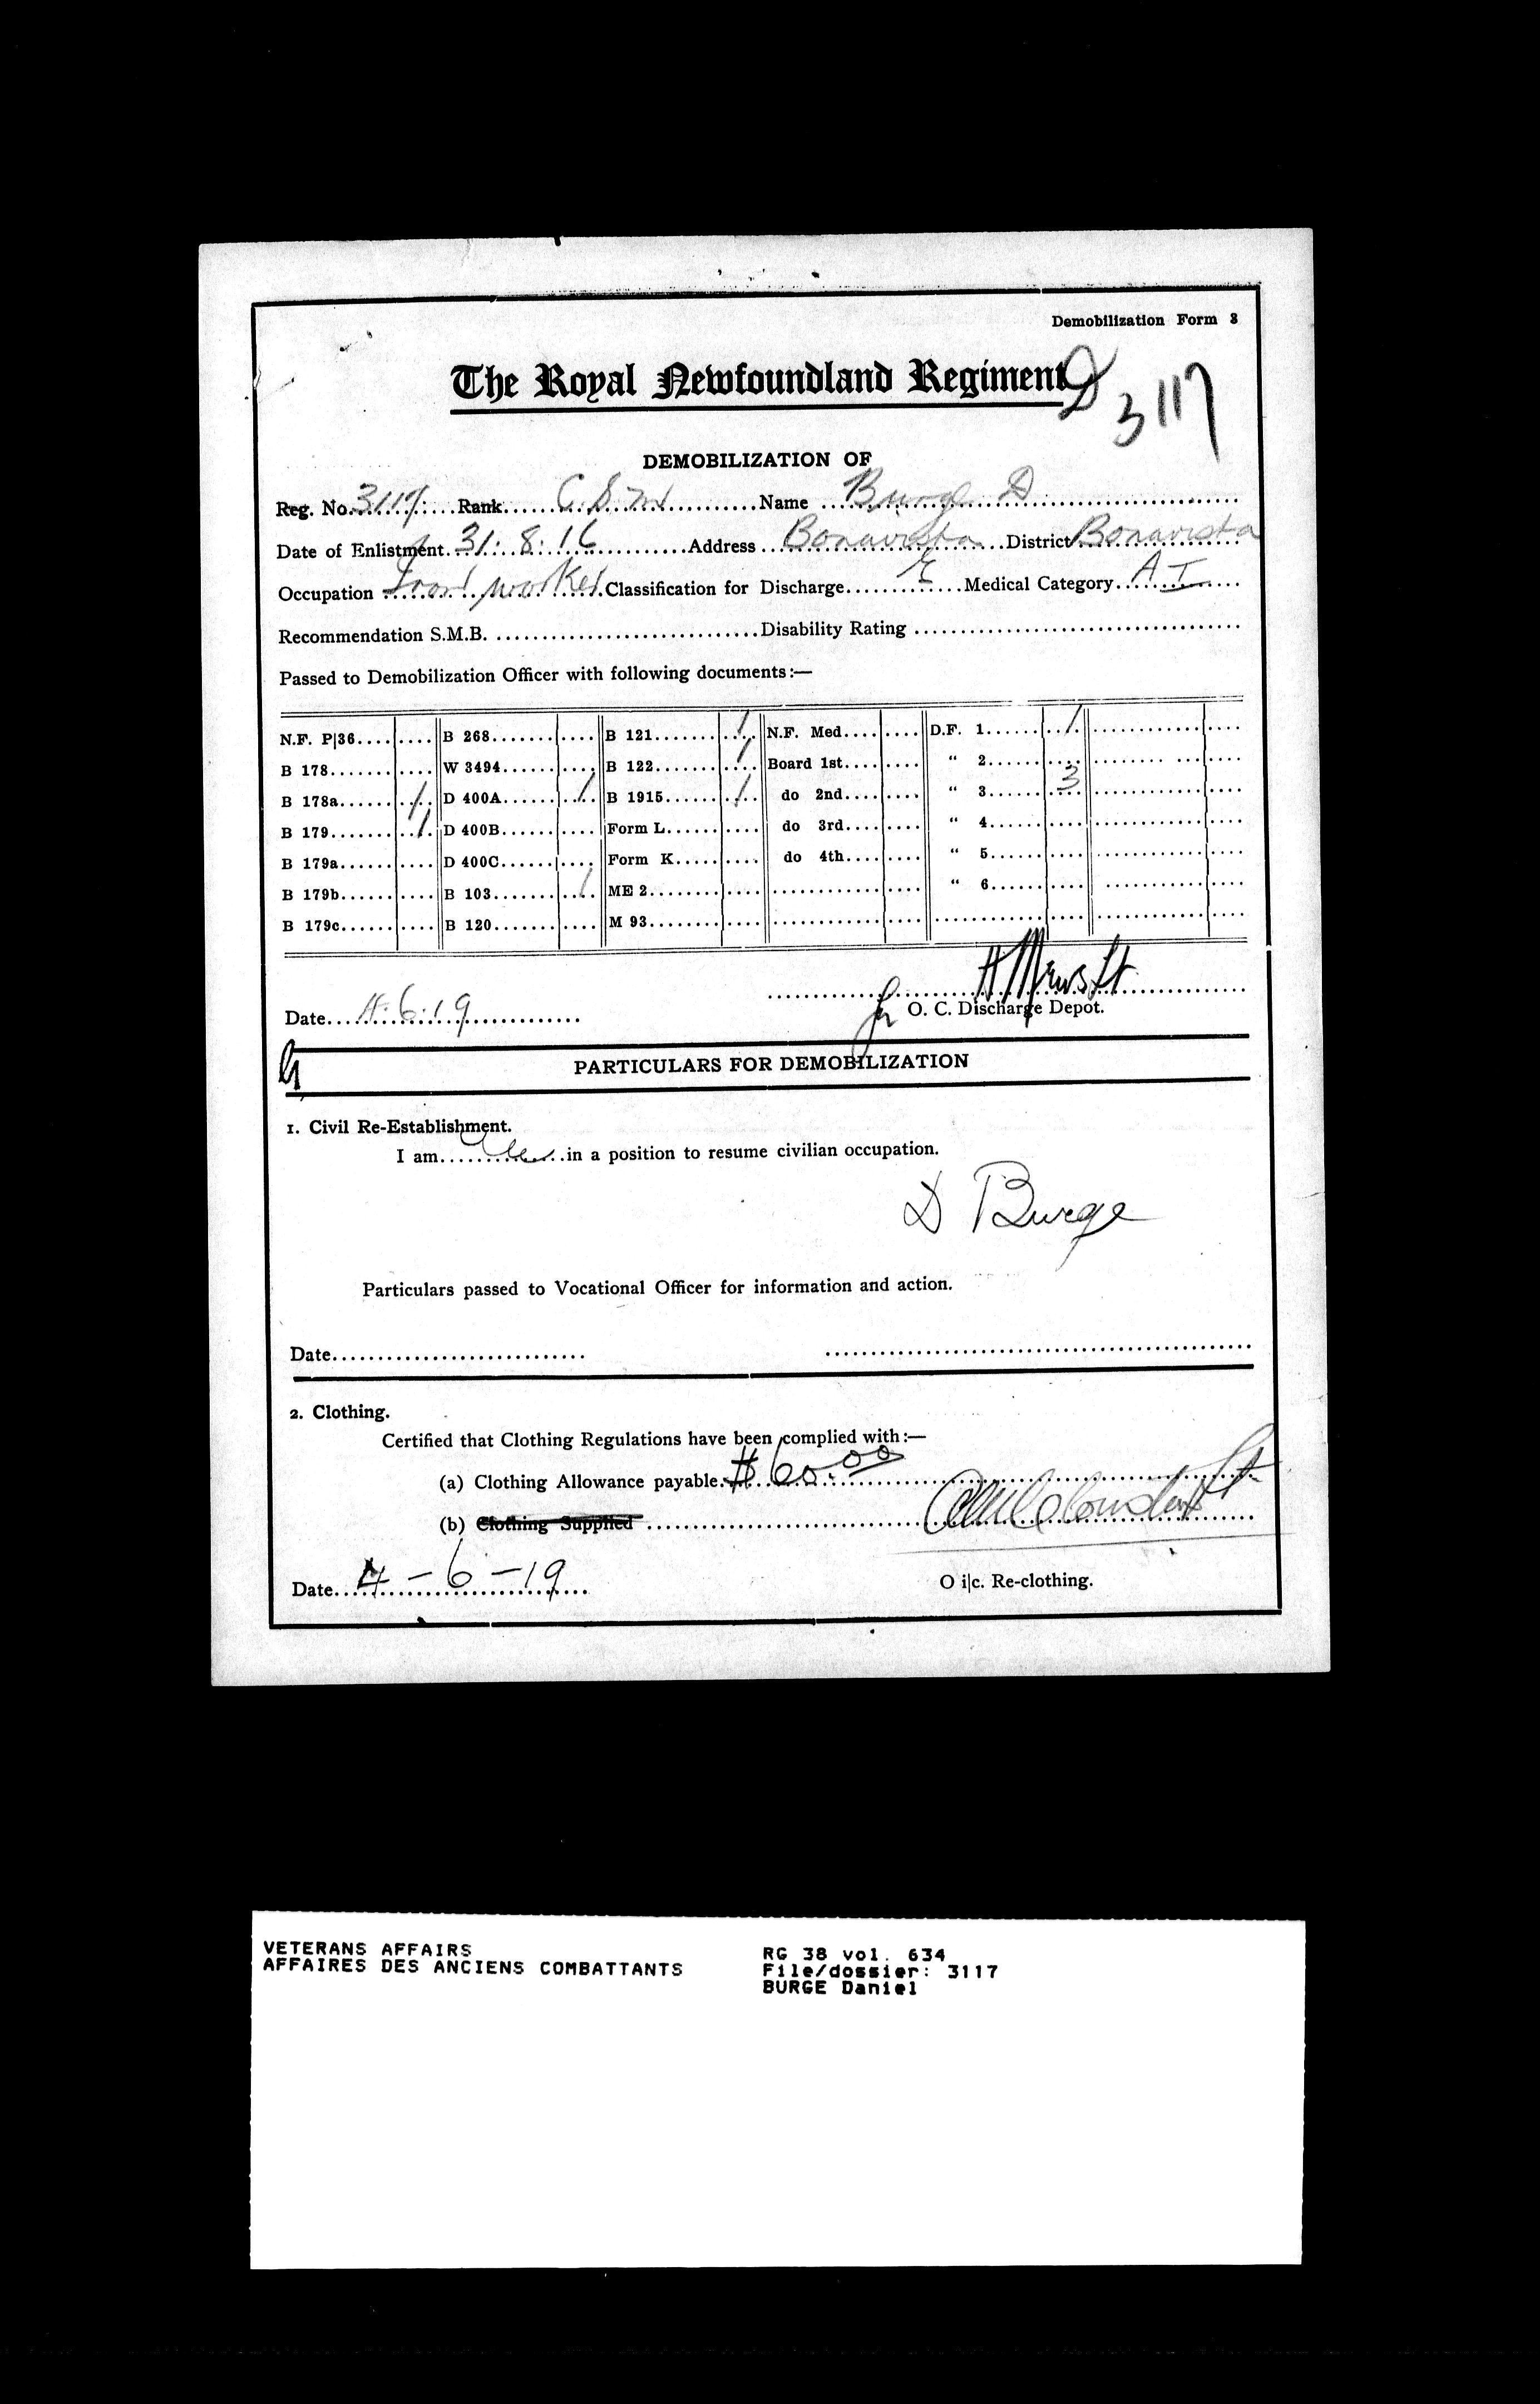 Demobilization Form 3
The Royal Newfoundland Regiment
D 3117
DEMOBILIZATION OF
Reg. No. 3117 Rank C.S.M Name Burge D
Date of Enlistment 31.8.16 Address Bonavista District Bonavista
Occupation Iron worker Classification for Discharge E Medical Category A I
Recommendation S.M.B. Disability Rating
Passed to Demobilization Officer with following documents:—
N.F. P|36 B 268 B 121 1 N.F. Med. D.F. 1 1
B 178 W 3494 B 122 1 Board 1st “ 2
B 178a 1 D 400A 1 B 1915 1 do 2nd “ 3 3
B 179 1 D 400B Form L do 3rd “ 4
B 179a D 400C Form K do 4th “ 5
B 179b B 103 1 ME 2 “ 6
B 179c B 120 M 93
H Mews Lt
Date 4.6.19 for O. C. Discharge Depot.
PARTICULARS FOR DEMOBILIZATION
1. Civil Re-Establishment.
I am in a position to resume civilian occupation.
D Burge
Particulars passed to Vocational Officer for information and action.
Date
2. Clothing.
Certified that Clothing Regulations have been complied with:—
(a) Clothing Allowance payable $60.00
(b) Clothing Supplied Lt
Date 4-6-19 O i|c. Re-clothing.
VETERANS AFFAIRS RG 38 vol. 634
AFFAIRES DES ANCIENS COMBATTANTS File/dossier: 3117
BURGE Daniel